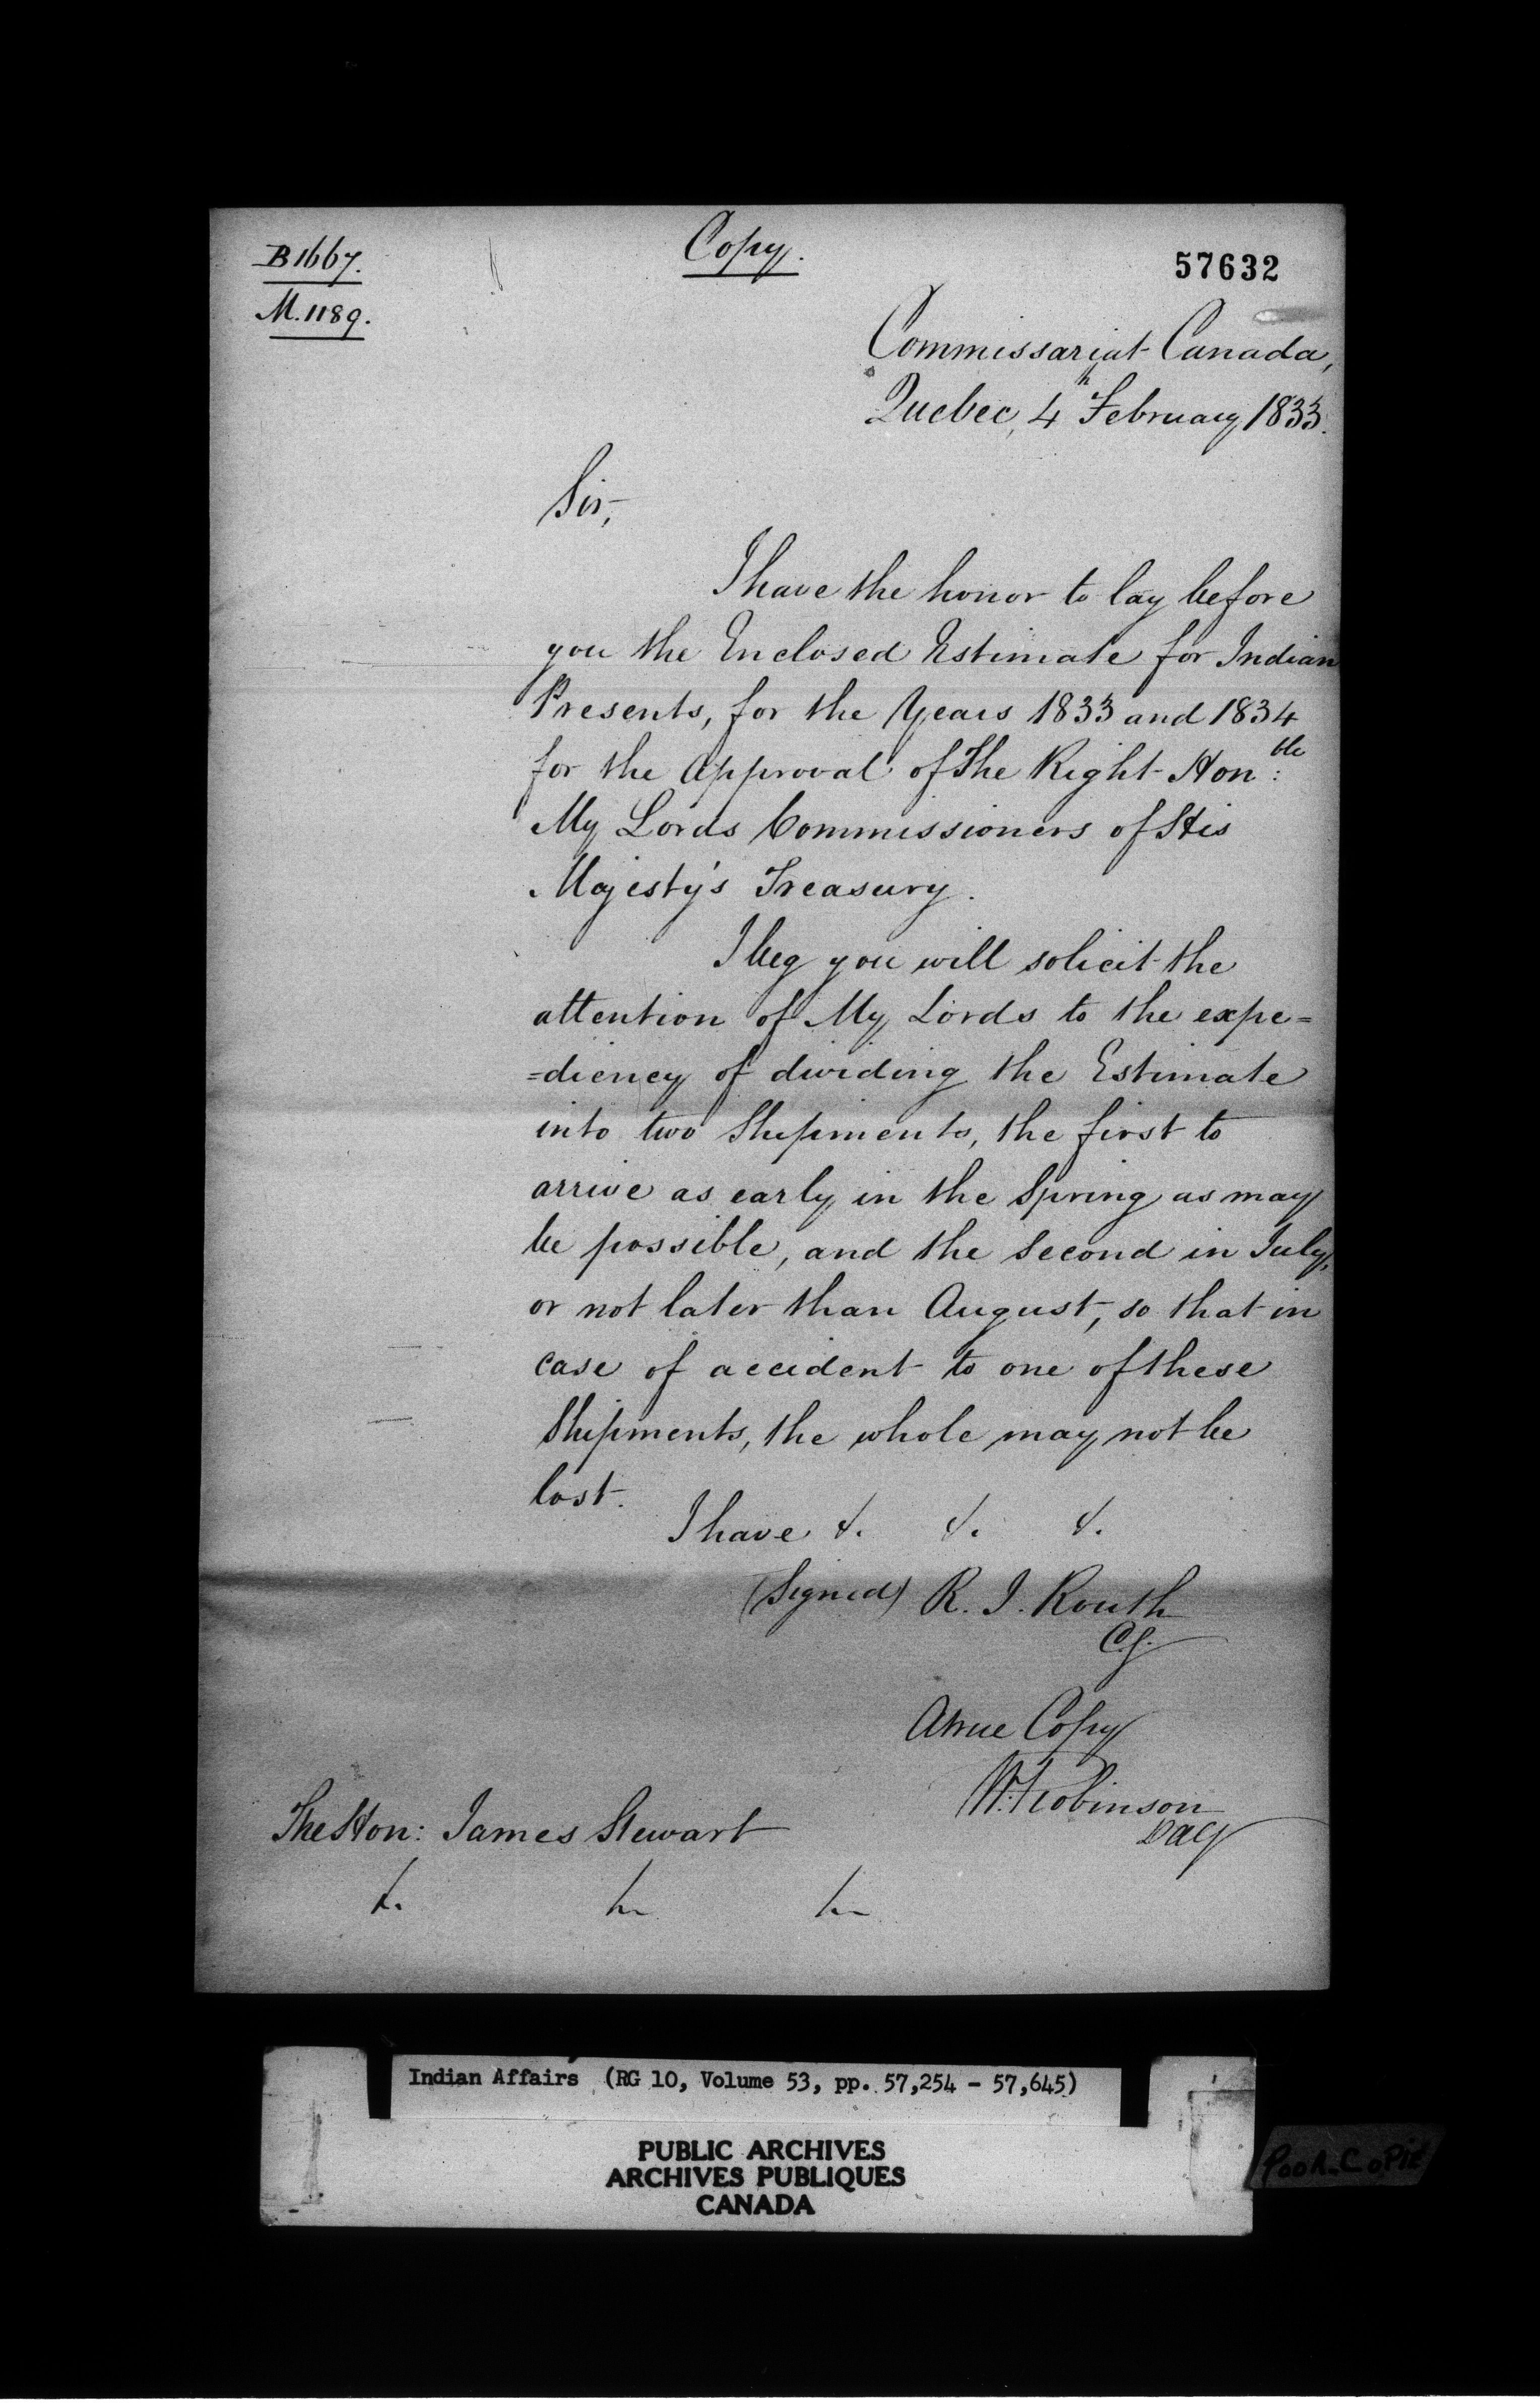 B 1667.
M. 1189.
Copy.
57632
Commissariat Canada,
Quebec, 4th February 1833.
Sir,
I have the honor to lay before
you the Enclosed Estimate for Indian
Presents, for the Years 1833 and 1834
for the Approval of The Right Hon:ble
My Lords Commissioners of His
Majesty's Treasury.
I beg you will solicit the
attention of My Lords to the expe=
=diency of dividing the Estimate
into two Shipments, the first to
arrive as early in the Spring as may
be possible, and the Second in July,
or not later than August, so that in
case of accident to one of these
Shipments, the whole may not be
lost.
I have &. &. &.
(Signed) R. I. Routh
C.G.
A true Copy
W. Robinson
DACG
The Hon: James Stewart
&. &. &.
Indian Affairs (RG 10, Volume 53, pp. 57,254 - 57,645)
PUBLIC ARCHIVES
ARCHIVES PUBLIQUES
CANADA
Poor Copie